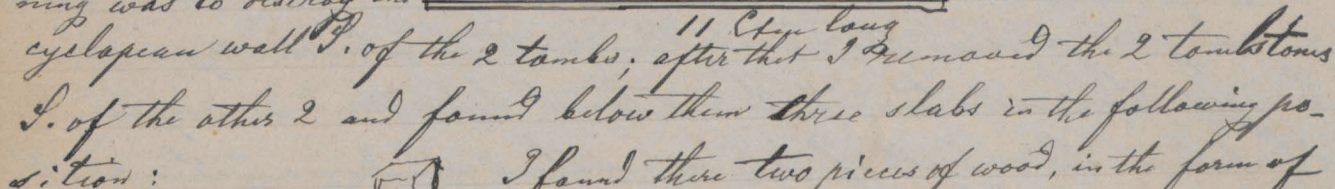 ning was to destroy the
11 Ctm long
cyclopean wall S. of the 2 tombs; after that I removed the 2 tombstones
S. of the other 2 and found below them three slabs in the following po-
sition: I found there two pieces of wood, in the form of